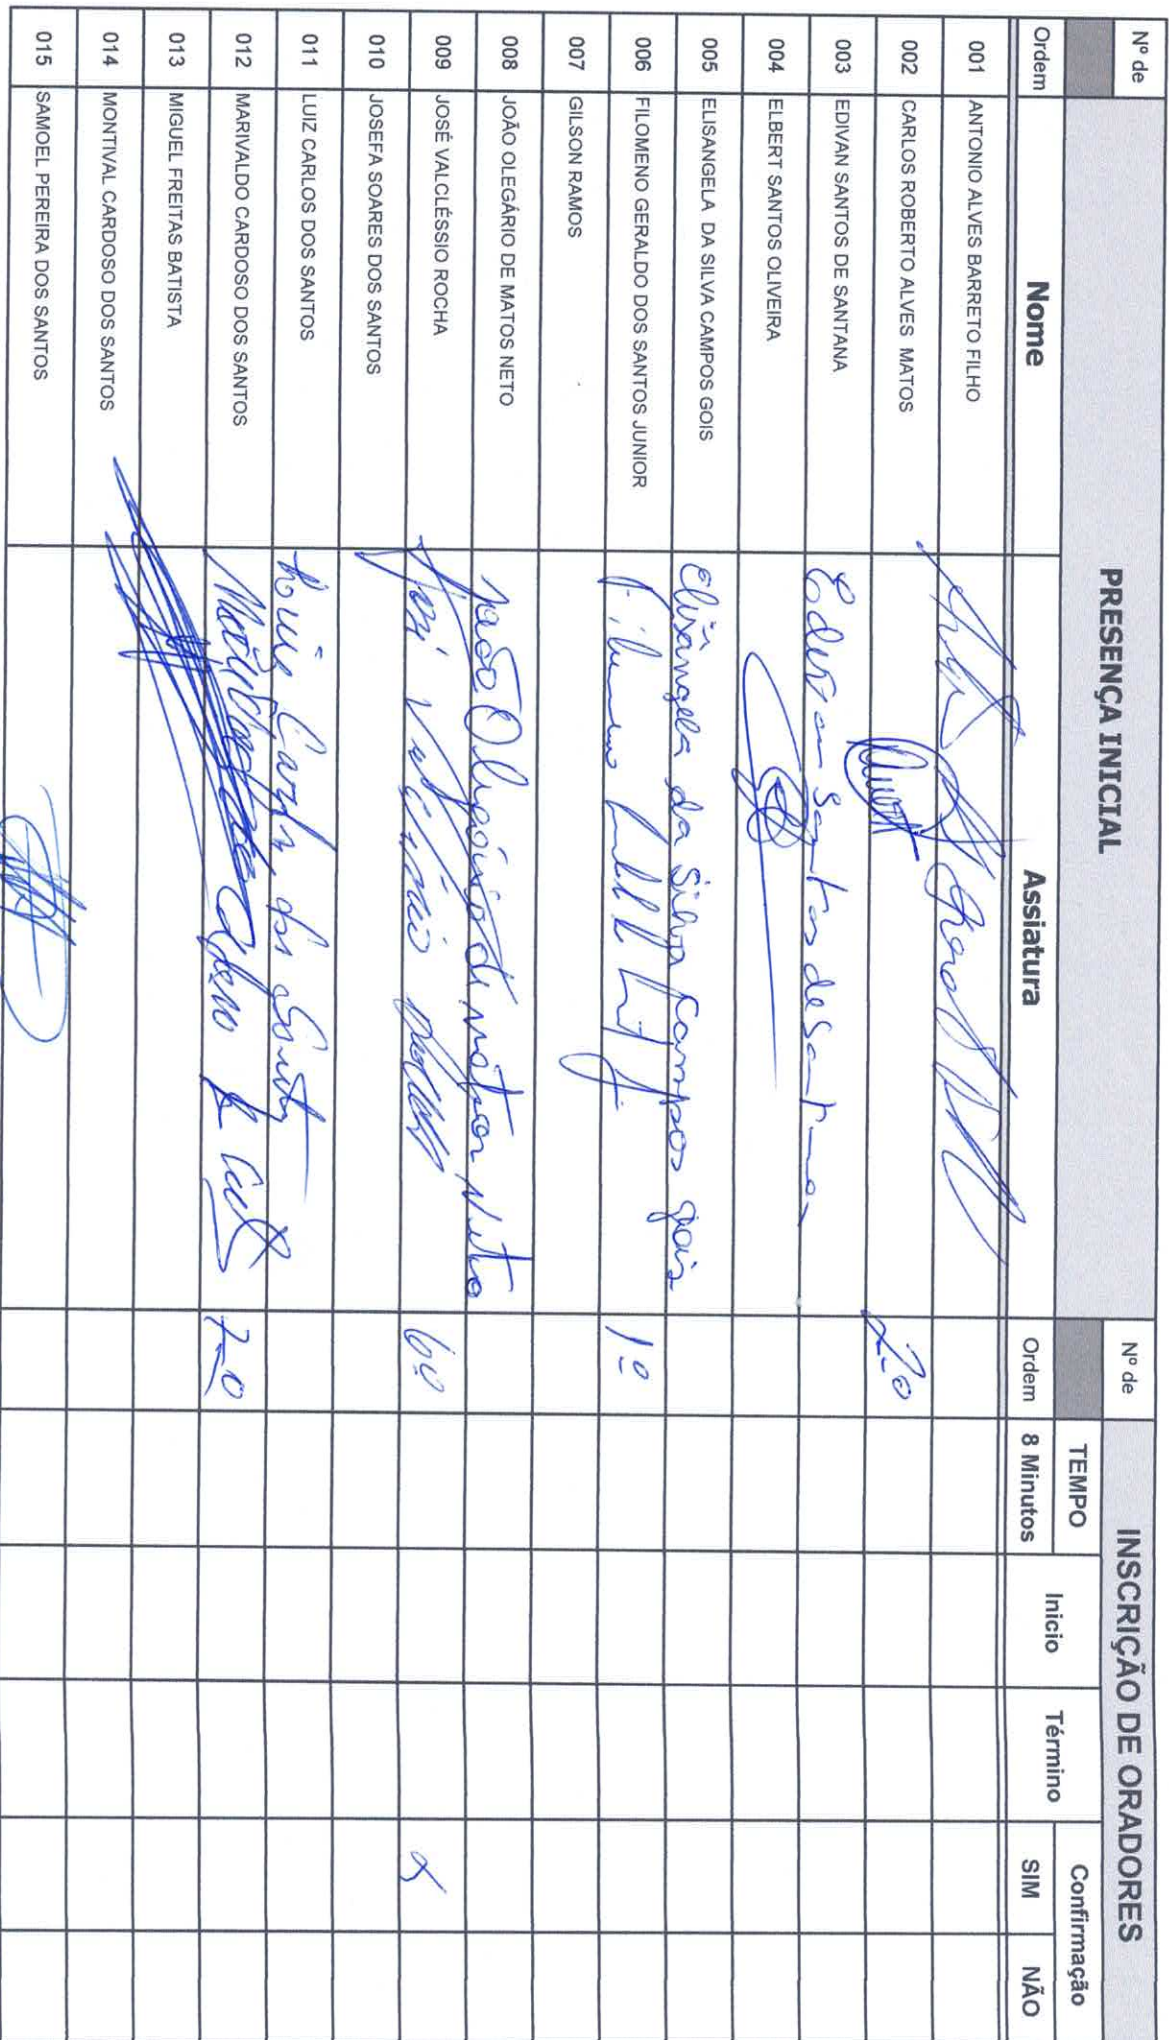 Nº de PRESENÇA INICIAL Nº de INSCRIÇÃO DE ORADORES
TEMPO Confirmação
Ordem Nome Assiatura Ordem 8 Minutos Inicio Término SIM NÃO
001 ANTONIO ALVES BARRETO FILHO
002 CARLOS ROBERTO ALVES MATOS 2º
003 EDIVAN SANTOS DE SANTANA Edivan Santos de Santana
004 ELBERT SANTOS OLIVEIRA
005 ELISANGELA DA SILVA CAMPOS GOIS Elisangela da Silva Campos gois
006 FILOMENO GERALDO DOS SANTOS JUNIOR 1º
007 GILSON RAMOS
008 JOÃO OLEGÁRIO DE MATOS NETO João Olegário de matos Neto
009 JOSÉ VALCLÉSSIO ROCHA 6º
010 JOSEFA SOARES DOS SANTOS
011 LUIZ CARLOS DOS SANTOS Luiz Carlos dos Santos
012 MARIVALDO CARDOSO DOS SANTOS 7º
013 MIGUEL FREITAS BATISTA
014 MONTIVAL CARDOSO DOS SANTOS
015 SAMOEL PEREIRA DOS SANTOS